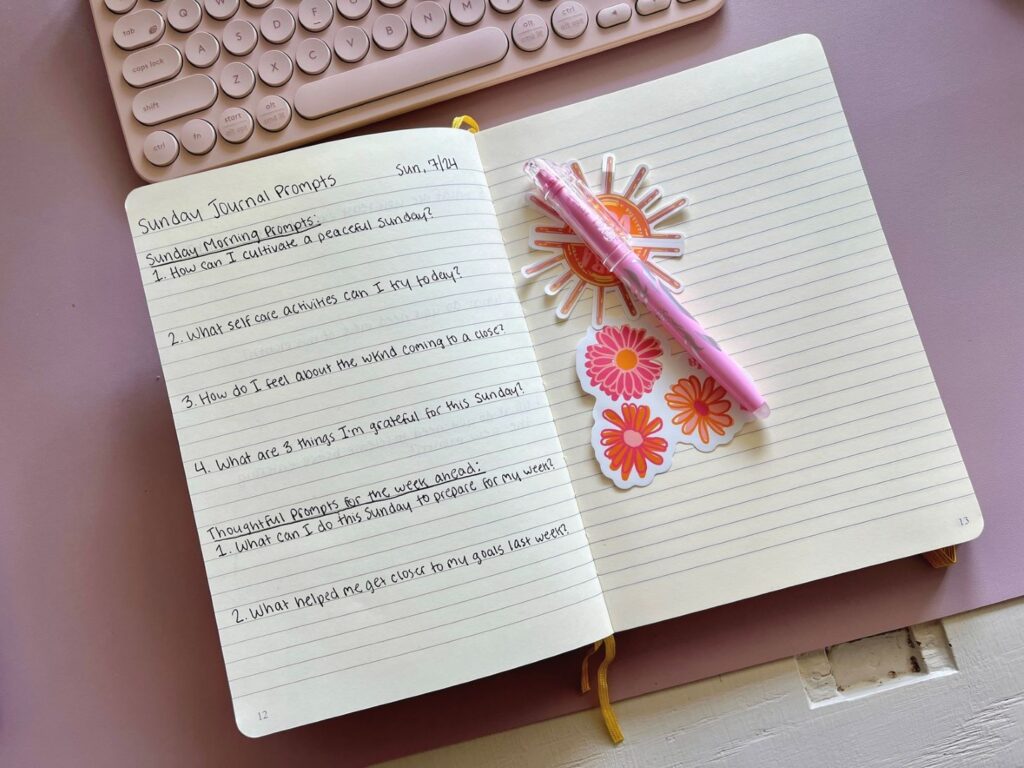 tab Q W E R T Y U I O P
caps lock A S D F G H J K L
shift Z X C V B N M alt cmd ⌘ ctrl
ctrl fn start alt opt alt cmd ⌘
Sunday Journal Prompts Sun, 7/24
Sunday Morning Prompts:
1. How can I cultivate a peaceful Sunday?
2. What self care activities can I try today?
3. How do I feel about the wknd coming to a close?
4. What are 3 things I'm grateful for this Sunday?
Thoughtful Prompts for the week ahead:
1. What can I do this Sunday to prepare for my week?
2. What helped me get closer to my goals last week?
12
13